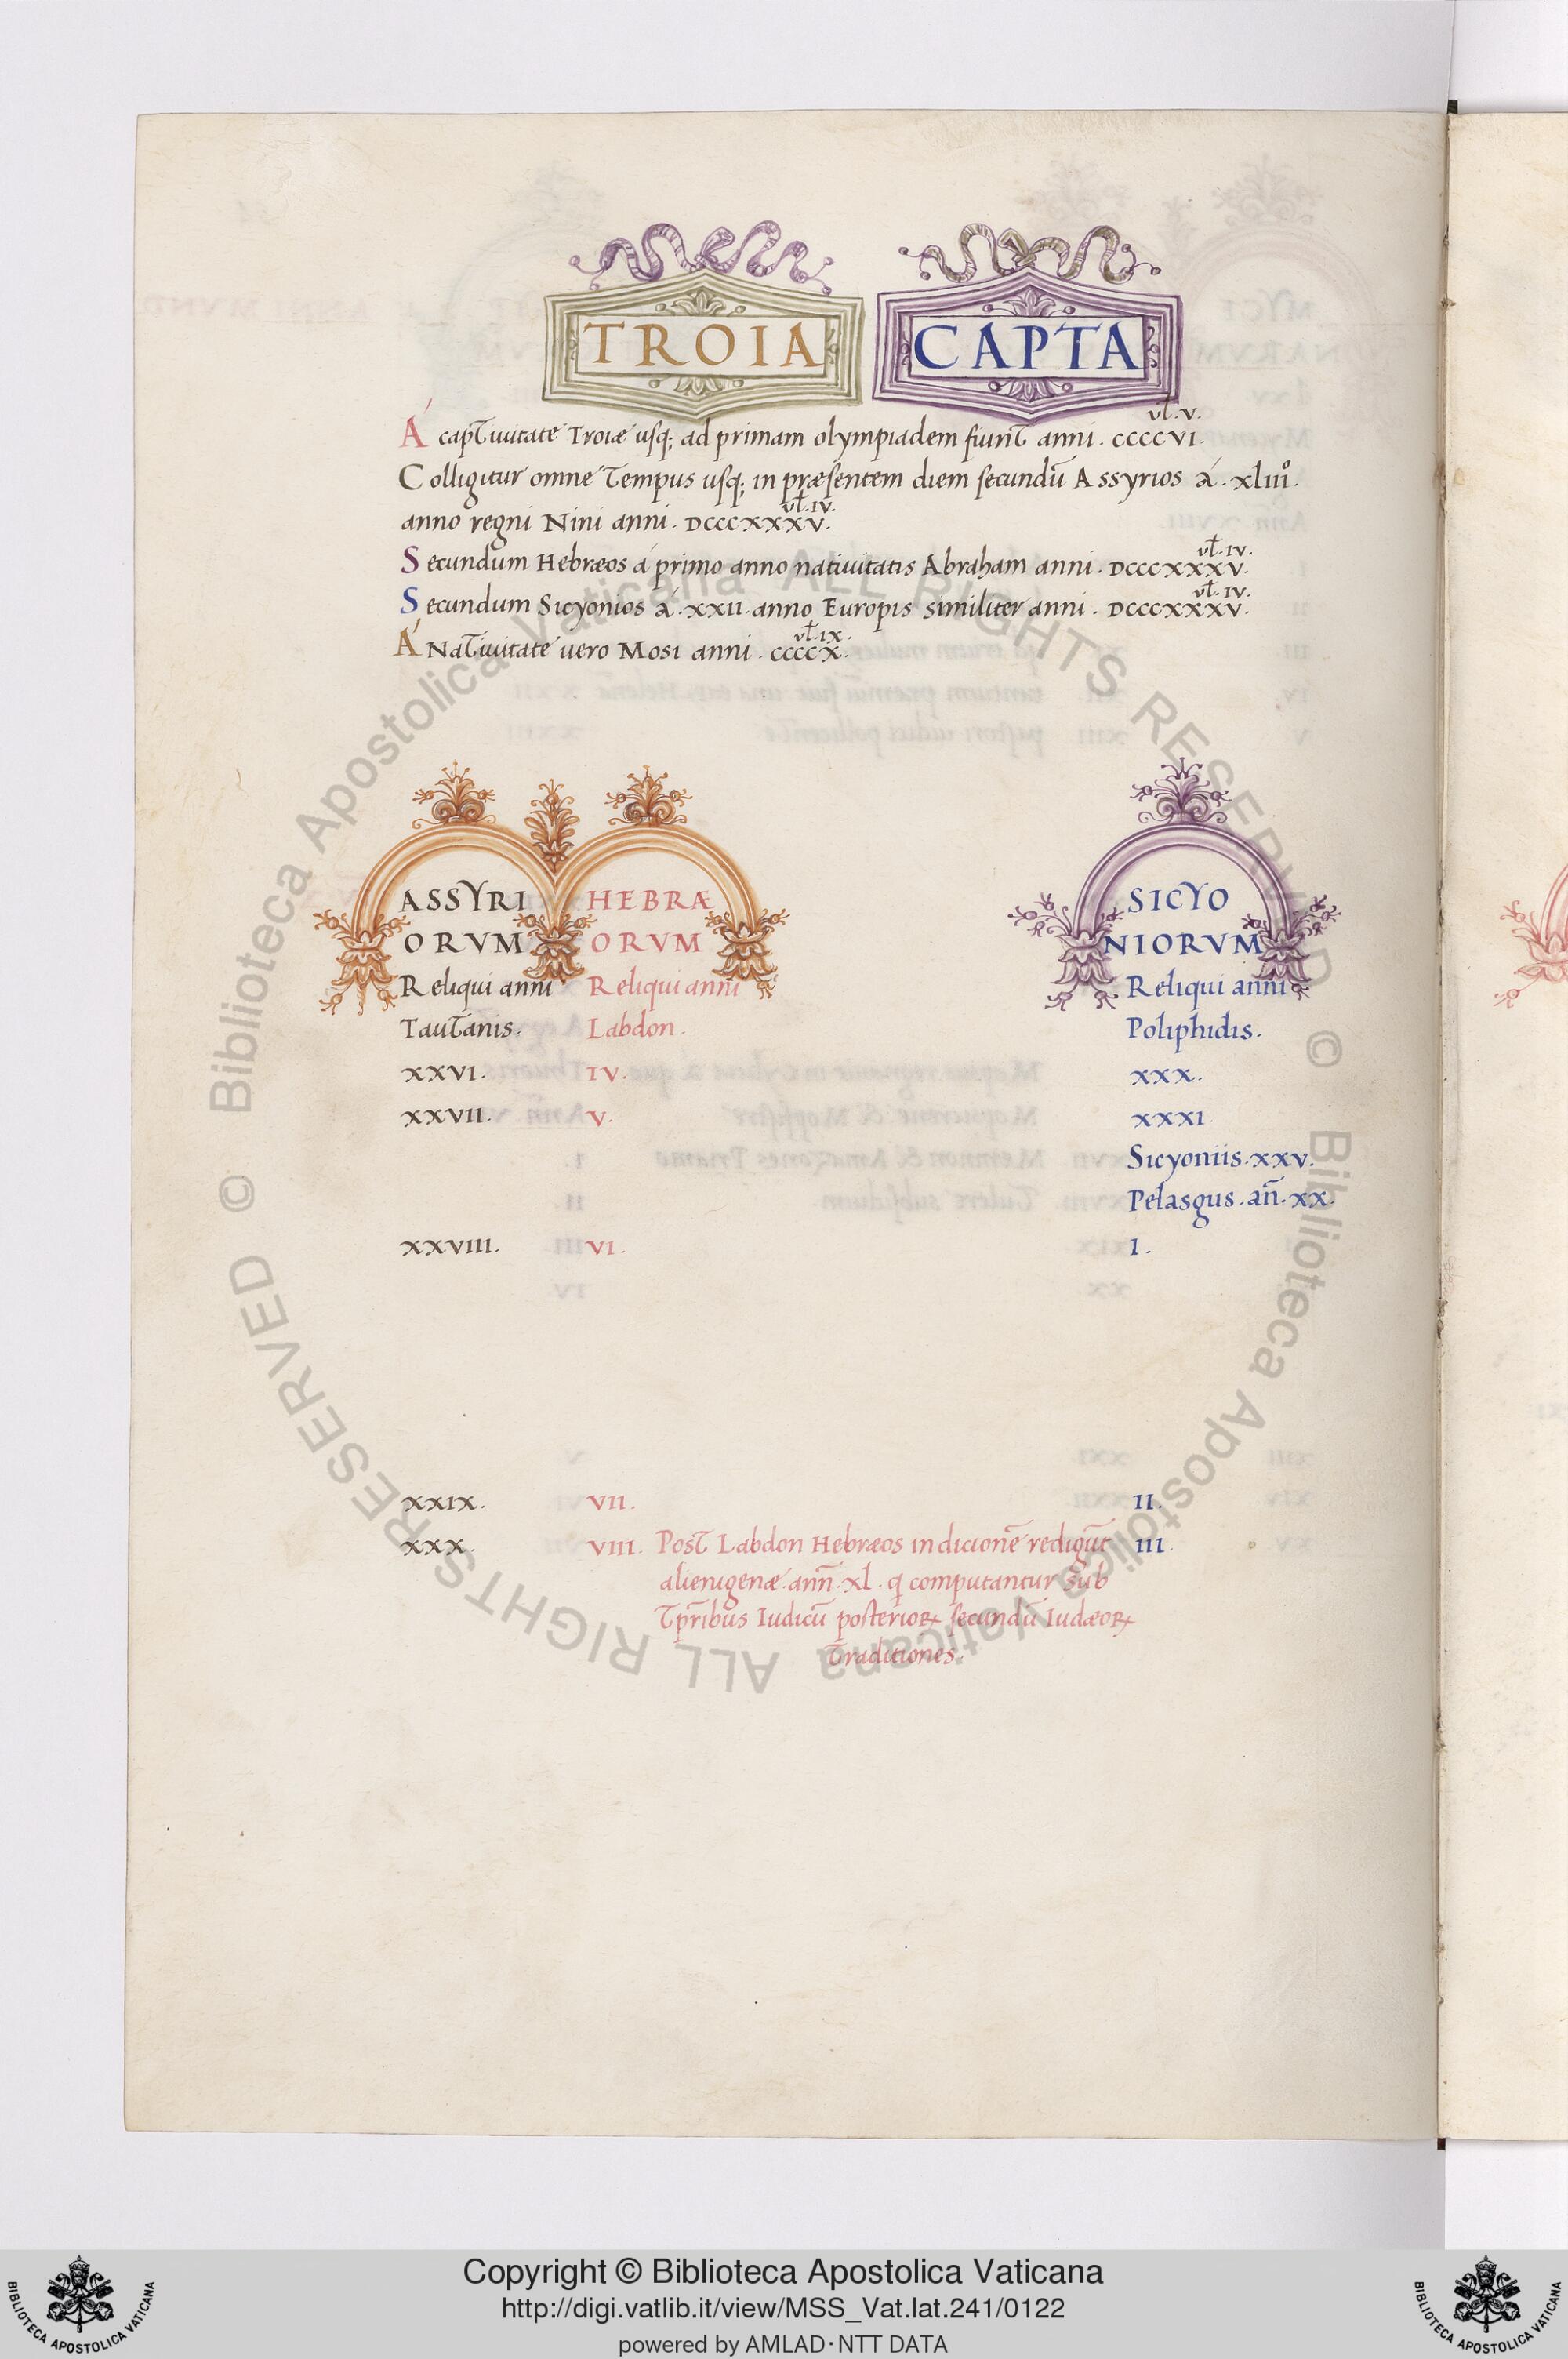 TROIA CAPTA
vl. v.
Á captiuitate Troiæ usq; ad primam olympiadem fiunt anni . CCCCVI.
Colligitur omne tempus usq; in præsentem diem secundū Assyrios á . xliii⁰.
vl. IV.
anno regni Nini anni . DCCCXXXV.
vl. IV.
Secundum Hebræos á primo anno natiuitatis Abraham anni . DCCCXXXV.
vl. IV.
Secundum Sicyonios á . XXII. anno Europis similiter anni . DCCCXXXV.
vl. IX.
Á Natiuitate uero Mosi anni . CCCCX.
ASSYRI HEBRÆ SICYO
ORVM ORVM NIORVM
Reliqui anni Reliqui anni Reliqui anni
Tautanis. Labdon. Poliphidis.
XXVI. IV. XXX.
XXVII. V. XXXI
Sicyoniis. XXV.
Pelasgus. an̄. XX.
XXVIII. VI. I.
XXIX. VII. II.
XXX. VIII. Post Labdon Hebræos in dicionē redigūt III.
alienigenæ. ann̄. xl. q computantur sub
tp̄ribus Iudicū posterioꝝ secundū Iudæoꝝ
traditiones.
© Biblioteca Apostolica Vaticana ALL RIGHTS RESERVED
© Biblioteca Apostolica Vaticana ALL RIGHTS RESERVED
Copyright © Biblioteca Apostolica Vaticana
http://digi.vatlib.it/view/MSS_Vat.lat.241/0122
powered by AMLAD·NTT DATA
BIBLIOTECA APOSTOLICA VATICANA
BIBLIOTECA APOSTOLICA VATICANA